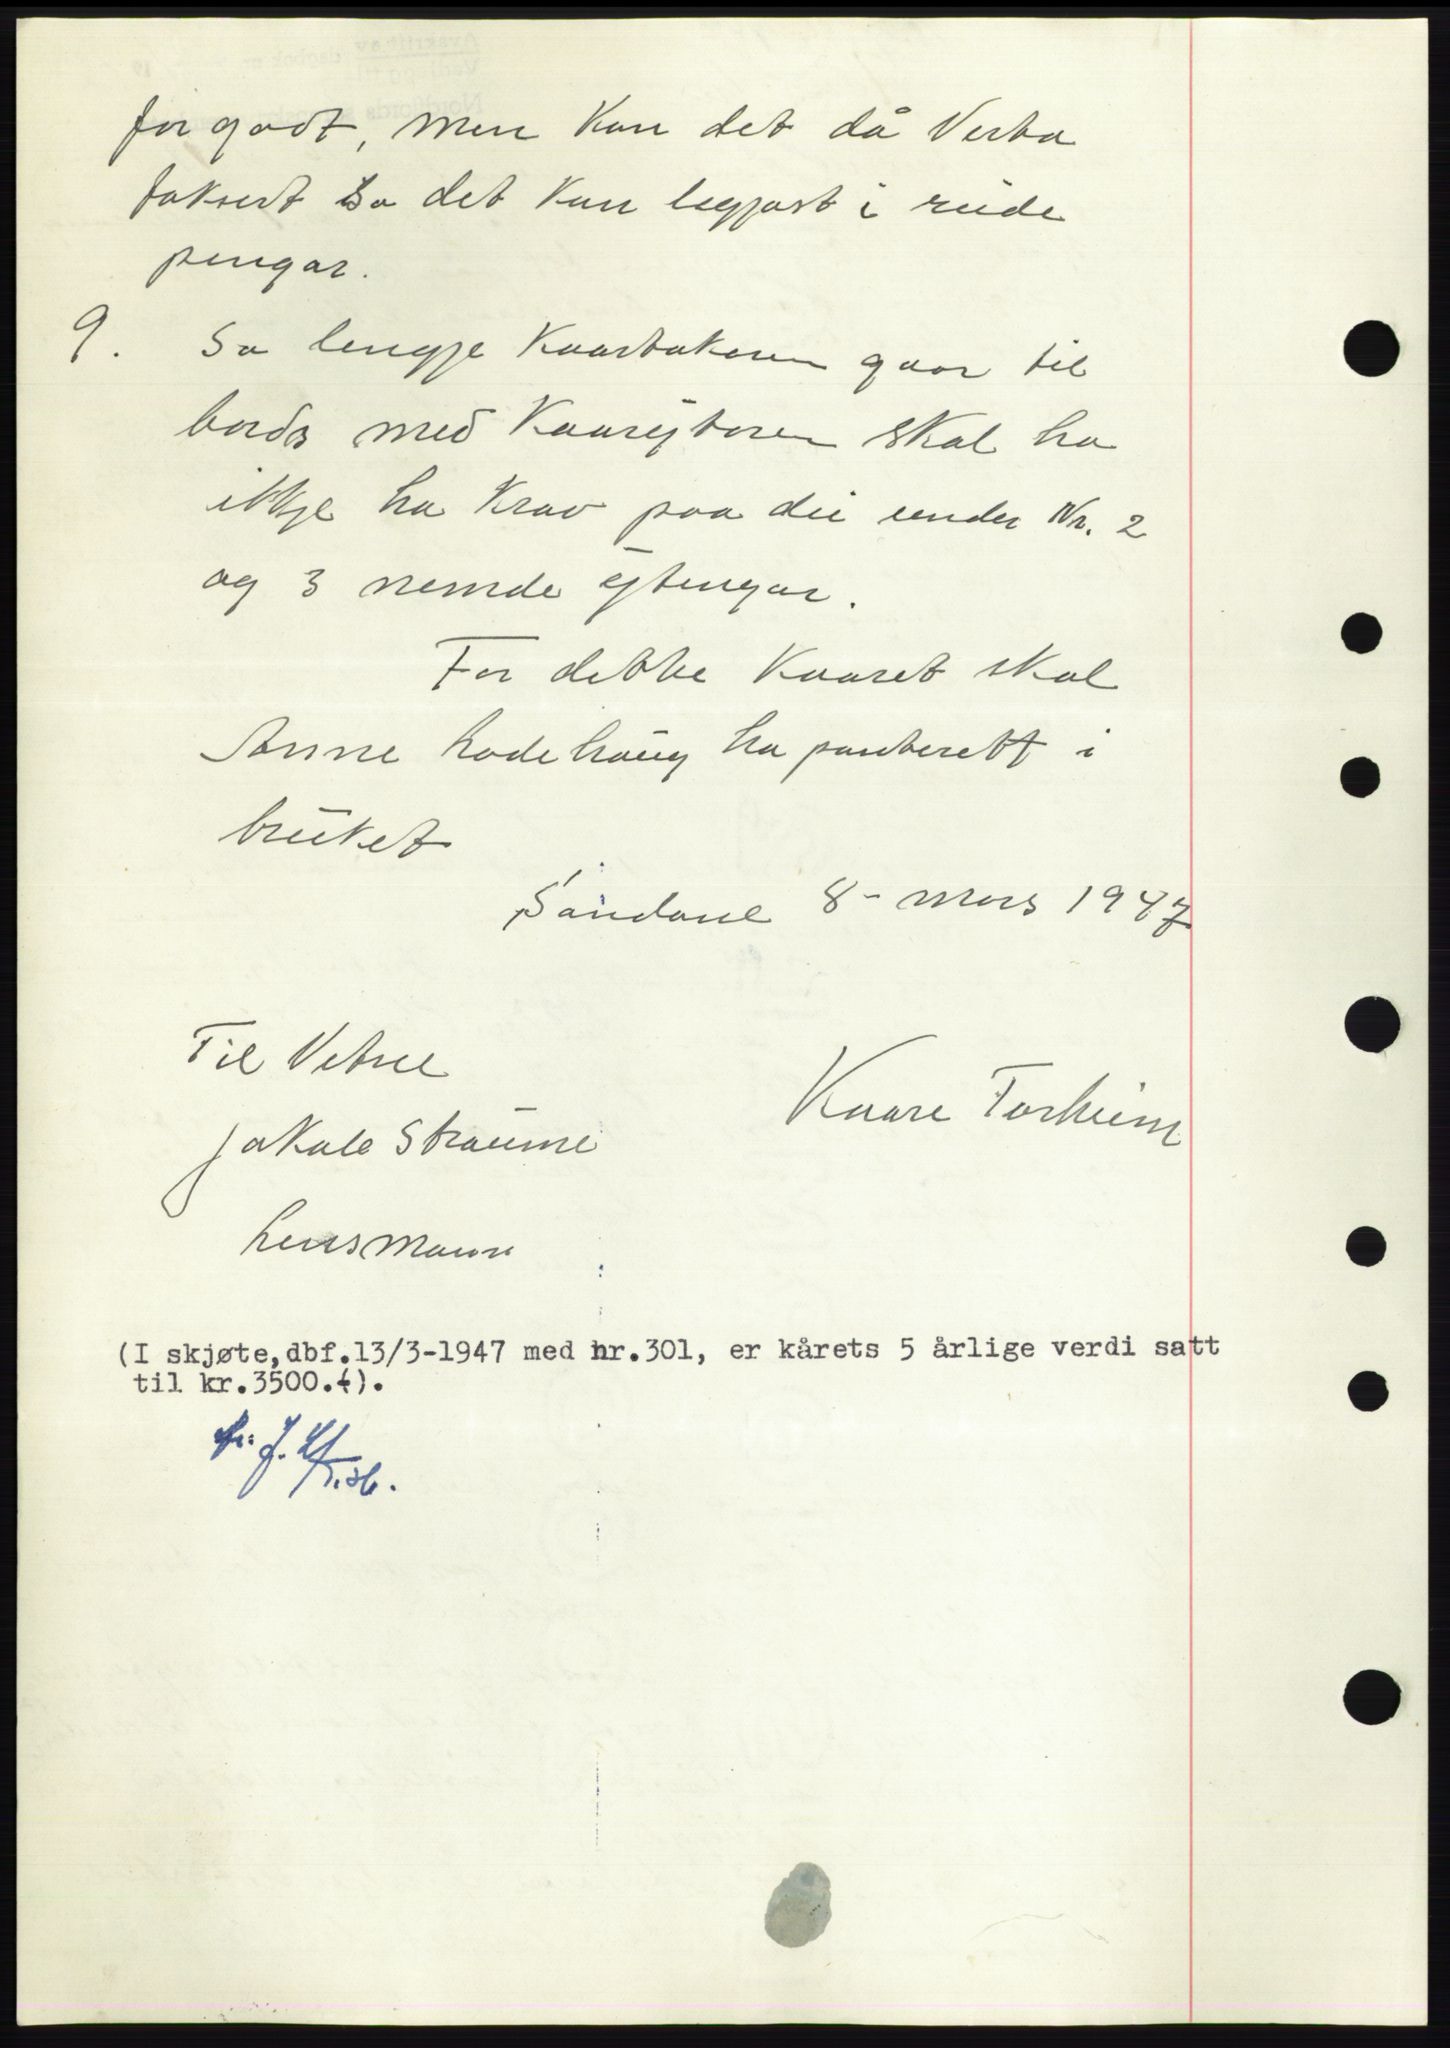 for godt, men kan det då Verta
taksert so det kan leggjast i reide
pengar.
9. So lengje Kaartakaren gaar til
bords med Kaarytaren skal ha
ikkje ha Krav paa dei under Nr. 2
og 3 nemde ytingar.
For dette Kaaret skal
Anne ha panterett i
bruket
Sandane 8- mars 1947
Til Vitne
Jakob Straume
Lensmann
Kaare Forheim
(I skjøte,dbf.13/3-1947 med nr.301, er kårets 5 årlige verdi satt
til kr.3500.-).